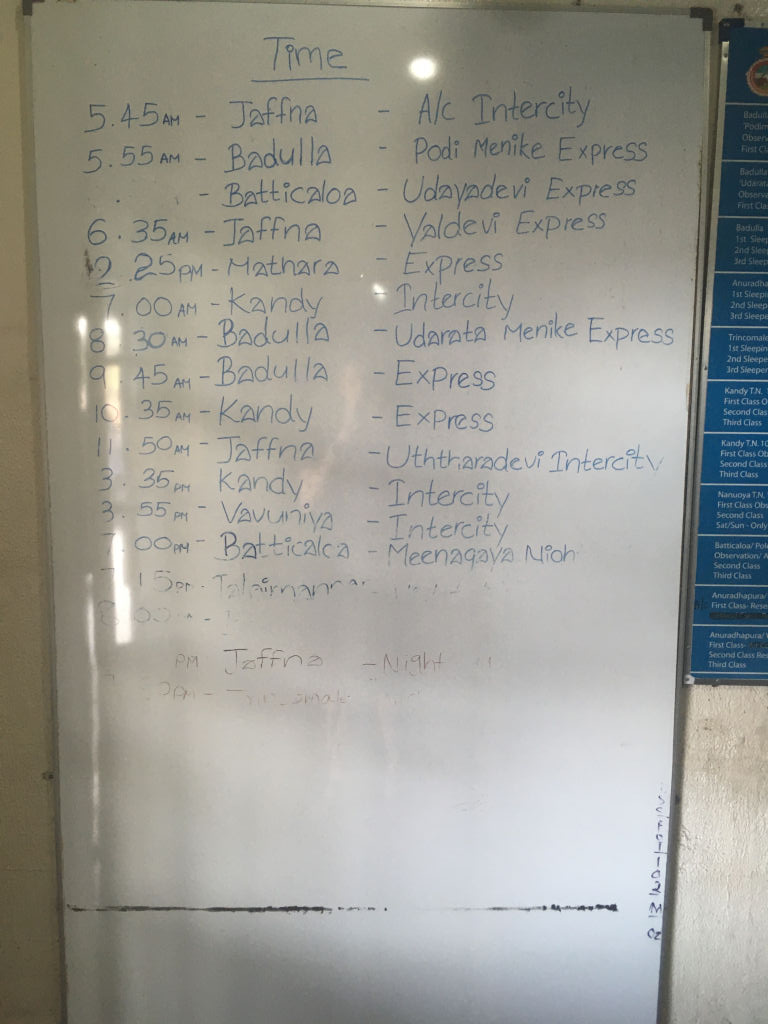 Time
5.45AM - Jaffna - A/c Intercity
5.55AM - Badulla - Podi Menike Express
- Batticaloa - Udayadevi Express
6.35AM - Jaffna - Yaldevi Express
2.25PM - Mathara - Express
7.00AM - Kandy - Intercity
8.30AM - Badulla - Udarata Menike Express
9.45AM - Badulla - Express
10.35AM - Kandy - Express
11.50AM - Jaffna - Uththaradevi Intercity
3.35PM Kandy - Intercity
3.55PM - Vavuniya - Intercity
7.00PM - Batticaloa - Meenagaya Nigh
15PM - Talaimannar
8.00
PM Jaffna - Night
Badulla
Observ
First Cl
Badulla
'Udarat
Observ
First Clas
Badulla
1st Sleep
2nd Sleep
3rd Sleep
Anuradha
1st Sleepin
2nd Sleepe
3rd Sleepe
Trincomale
1st Sleepin
2nd Sleepe
3rd Sleeper
Kandy T.N.
First Class O
Second Clas
Third Class
Kandy T.N. 10
First Class Ob
Second Class
Third Class
Nanuoya T.N.
First Class Obs
Second Class
Sat/Sun - Only
Batticaloa/ Pol
Observation/ A
Second Class
Third Class
Anuradhapura/
First Class- Rese
Anuradhapura/ V
First Class-
Second Class Res
Third Class